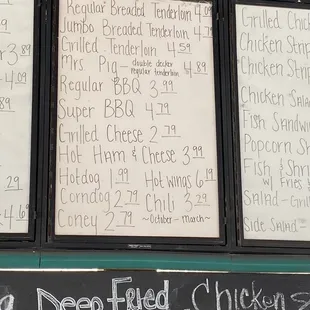 Regular Breaded Tenderloin 4.09
Jumbo Breaded Tenderloin 4
Grilled Tenderloin 4.59
Mrs Pig - double decker regular tenderloin 4.89
Regular BBQ 3.99
Super BBQ 4.79
Grilled Cheese 2.79
Hot Ham & Cheese 3.99
Hotdog 1.99 Hot wings 6.19
Corndog 2.79 Chili 3.29
Coney 2.79 ~October - March~
3.89
4.09
.89
.29
4.69
Grilled Chic
Chicken Strip
Chicken Strip
Chicken Sala
Fish Sandwi
Popcorn S
Fish & Shr
w/ Fries
Salad - Gril
Salad -
Side Salad -
Deep Fried Chicken